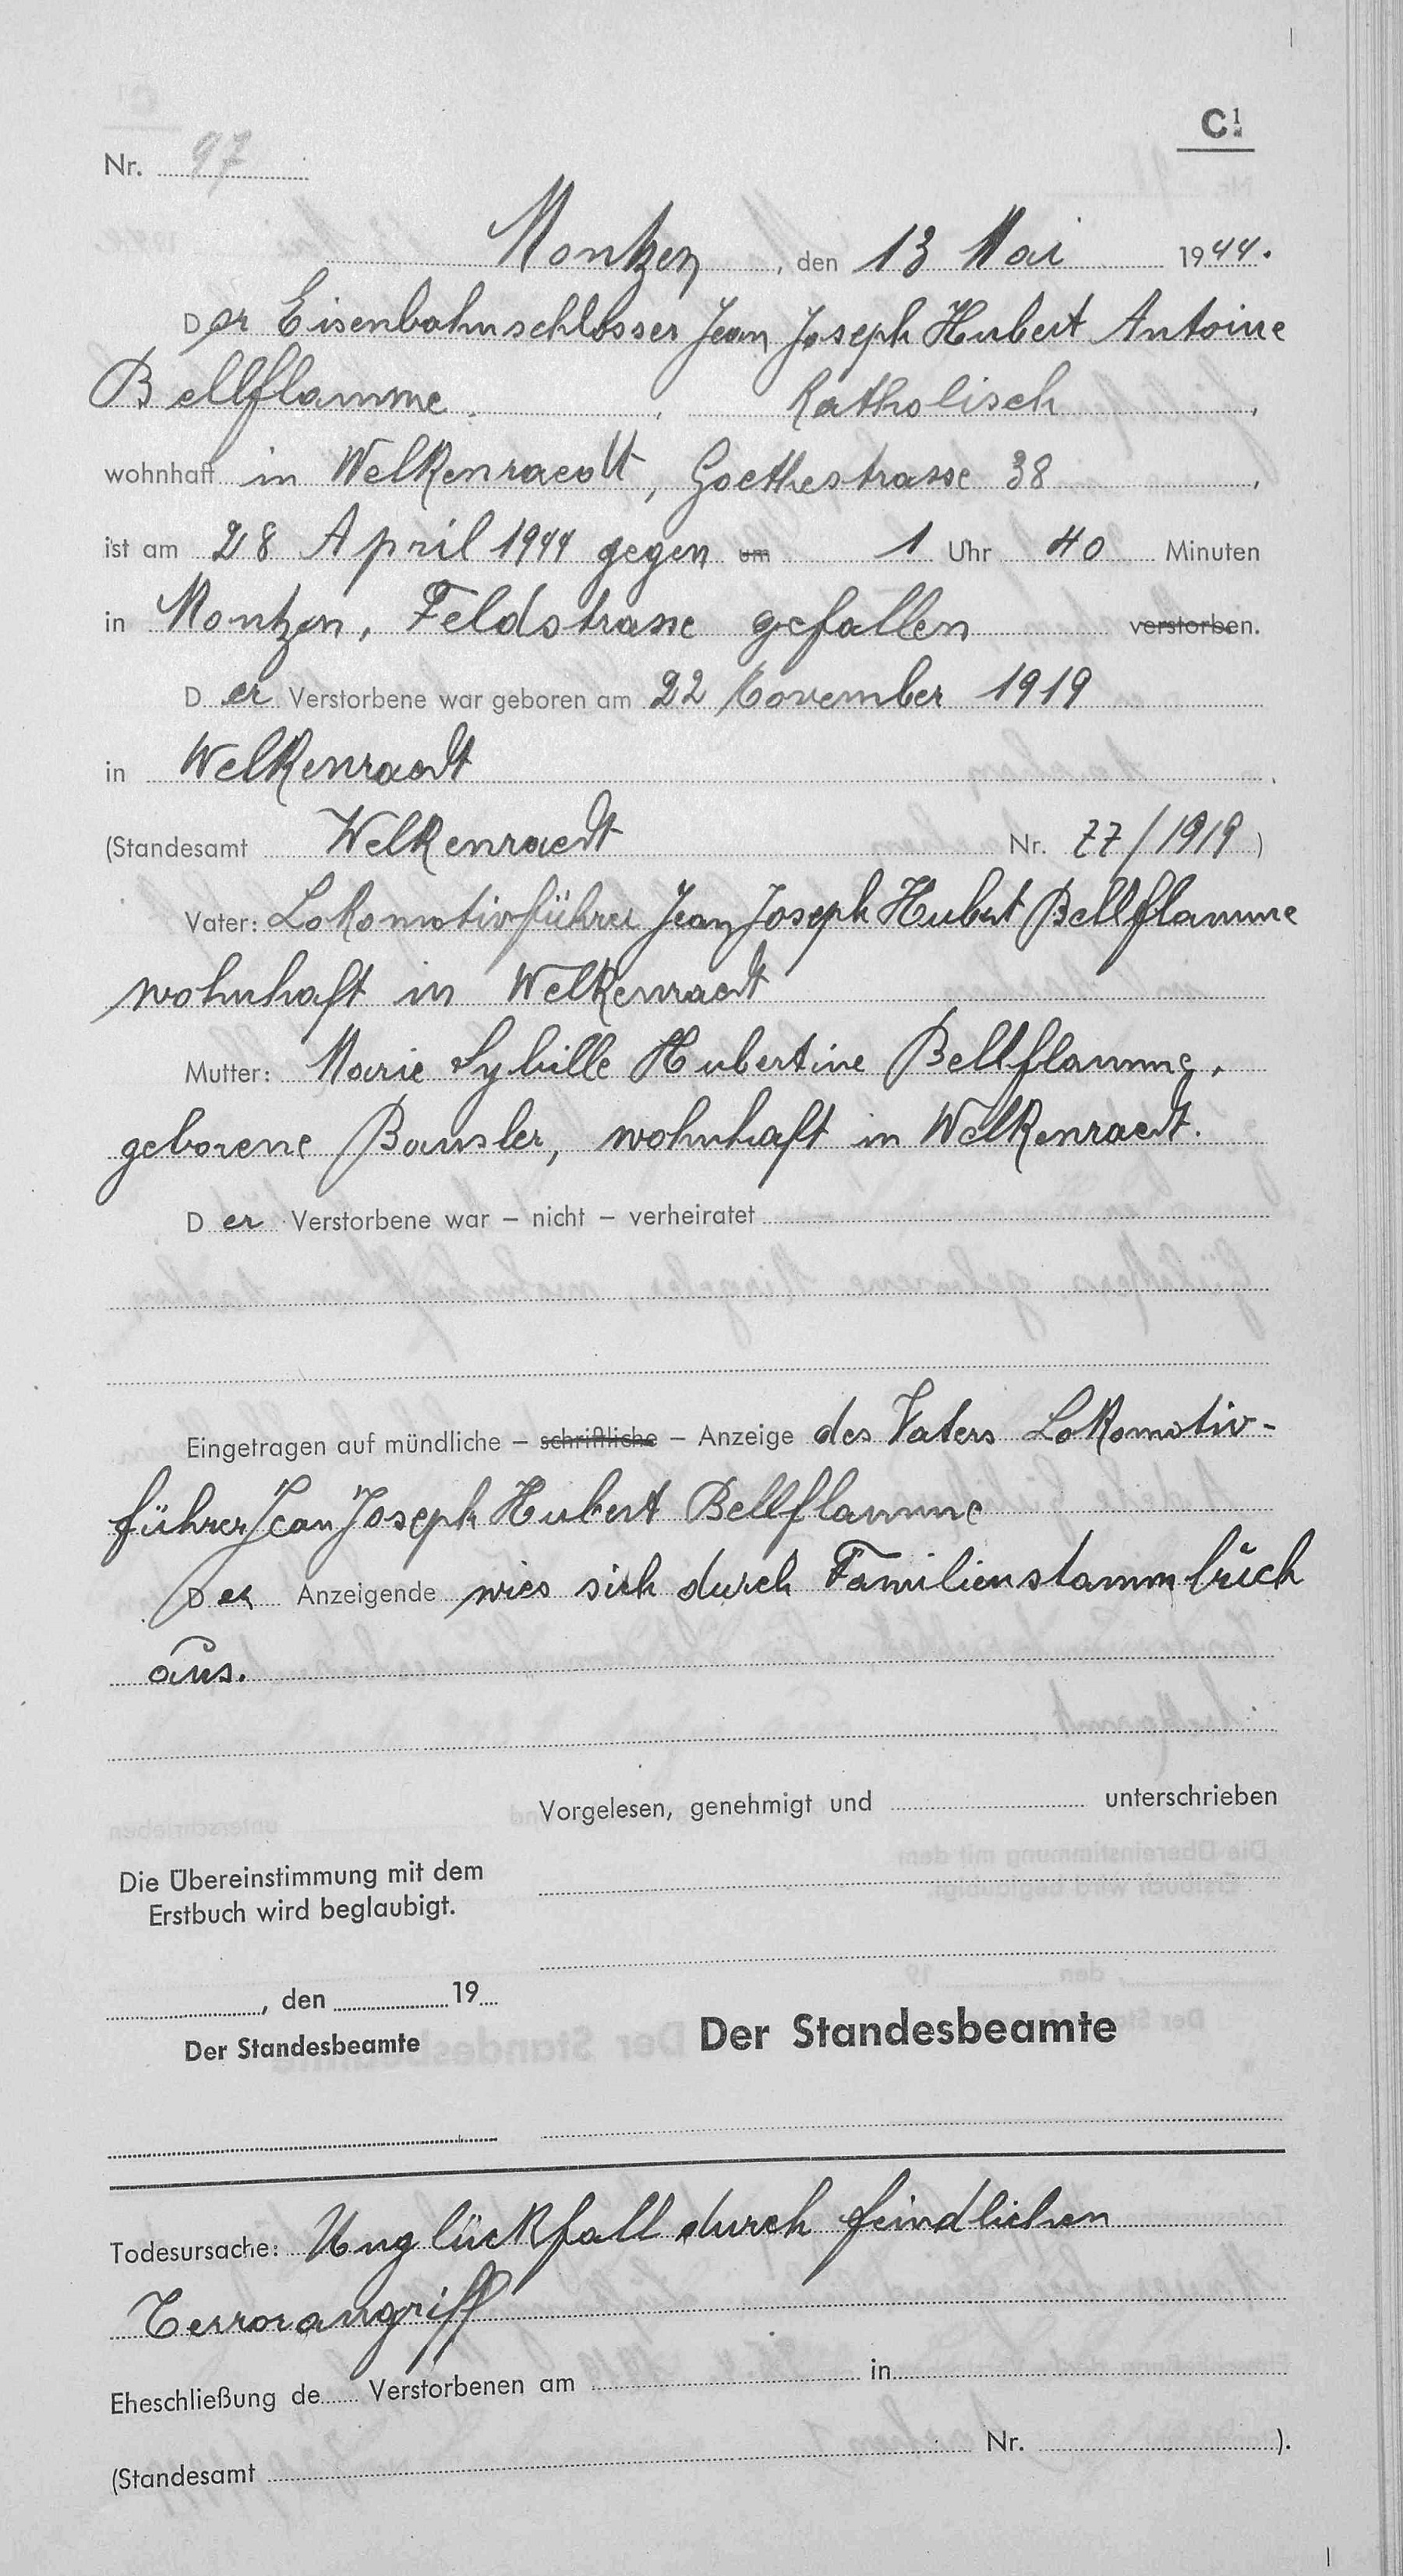 C1
Nr. 97
Montzen, den 13 Mai 1944.
Der Eisenbahnschlosser Jean Joseph Hubert Antoine
Bellflamme. Katholisch,
wohnhaft in Welkenraedt, Goethestrasse 38,
ist am 28 April 1944 gegen um 1 Uhr 40 Minuten
in Montzen, Feldstrasse gefallen verstorben.
Der Verstorbene war geboren am 22 November 1919
in Welkenraedt.
(Standesamt Welkenraedt Nr. 77/1919)
Vater: Lokomotivführer Jean Joseph Hubert Bellflamme
wohnhaft in Welkenraedt
Mutter: Marie Sybille Hubertine Bellflamme,
geborene Bansler, wohnhaft in Welkenraedt.
Der Verstorbene war – nicht – verheiratet
Eingetragen auf mündliche – schriftliche – Anzeige des Vaters Lokomotiv-
führer Jean Joseph Hubert Bellflamme
Der Anzeigende wies sich durch Familienstammbuch
aus.
Vorgelesen, genehmigt und unterschrieben
Die Übereinstimmung mit dem
Erstbuch wird beglaubigt.
, den 19
Der Standesbeamte
Der Standesbeamte
Todesursache: Unglückfall durch feindlichen
Terrorangriff
Eheschließung de Verstorbenen am in
(Standesamt Nr. ).